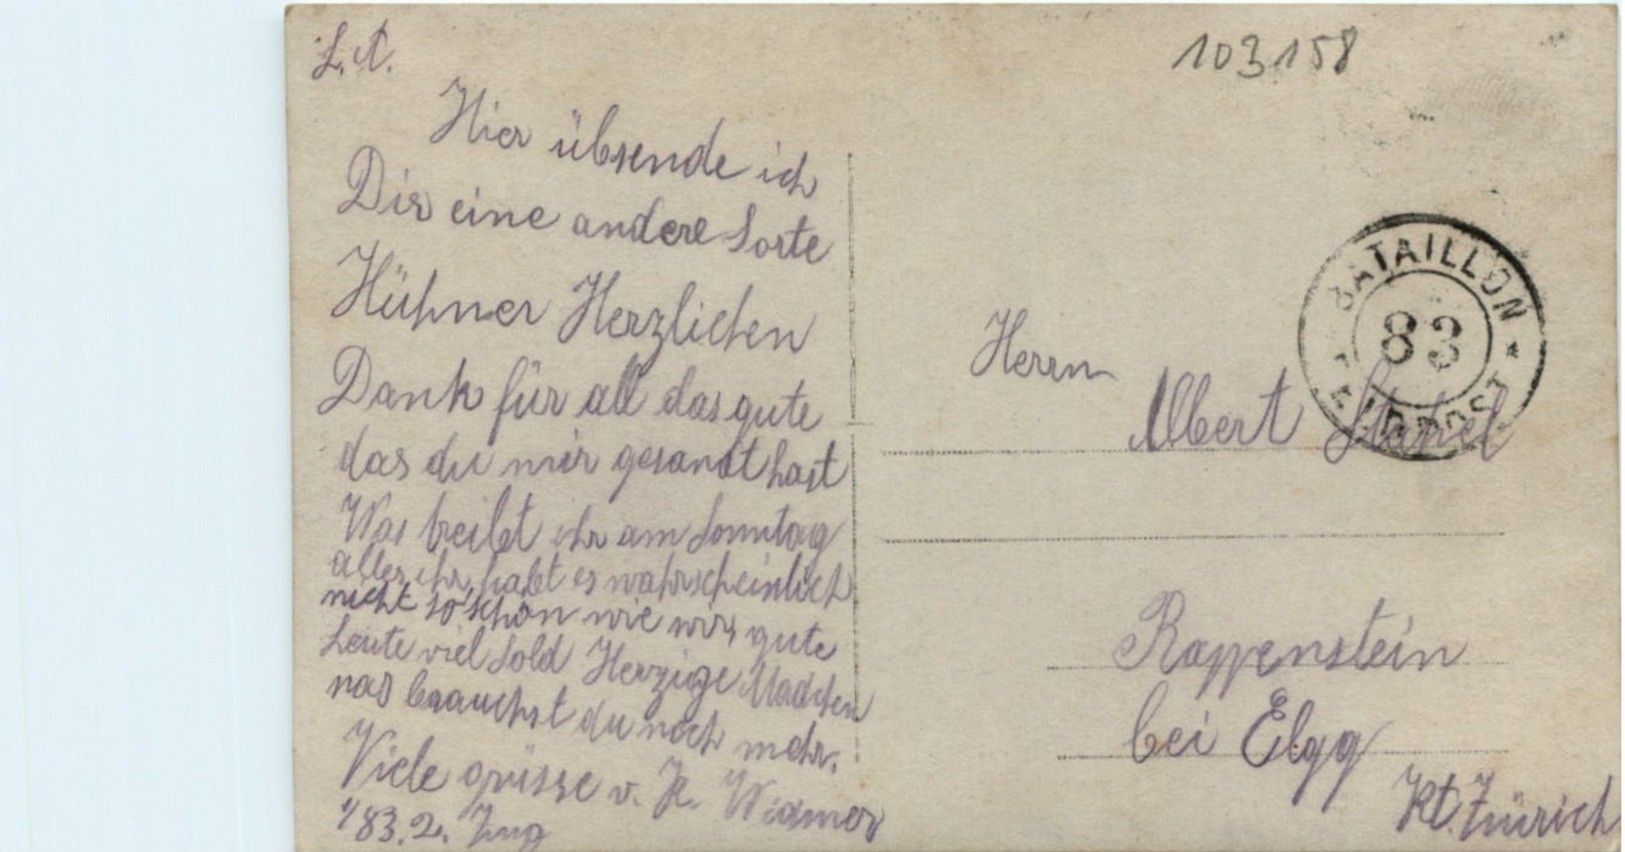 103158
L. A.
Hier übsende ich
Dir eine andere Sorte
Hühner Herzlichen
Dank für all das gute
das du mir gesandt hast
Was treibt ihr am Sonntag
alles, ihr habt es wahrscheinlich
nicht so schön wie wir, gute
Leute viel Sold Herzige Mädchen
was brauchst du noch mehr.
Viele grüsse v. K. Widmer
1/83. 2. Zug
BATAILLON
83
Herrn
Albert
Rappenstein
bei Elgg
Kt. Zürich